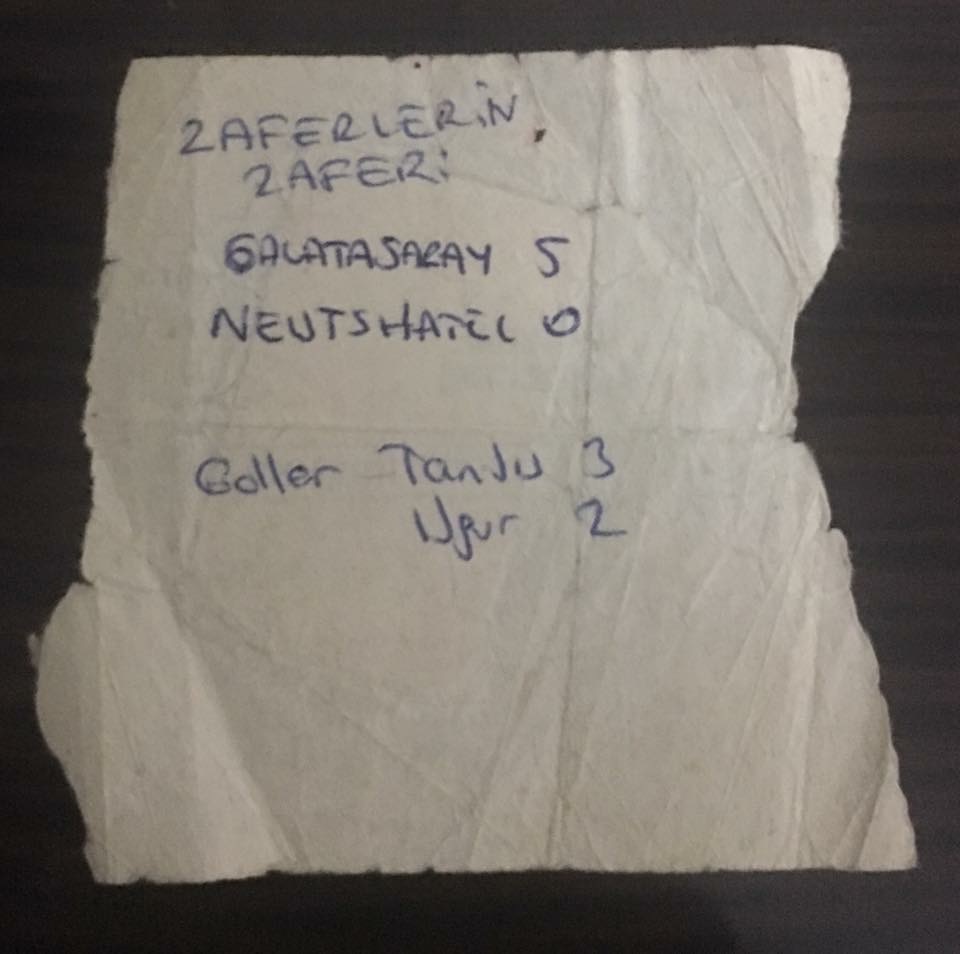 ZAFERLERiN
ZAFERi
GALATASARAY 5
NEUTSHATEL 0
Goller Tanju 3
Ugur 2